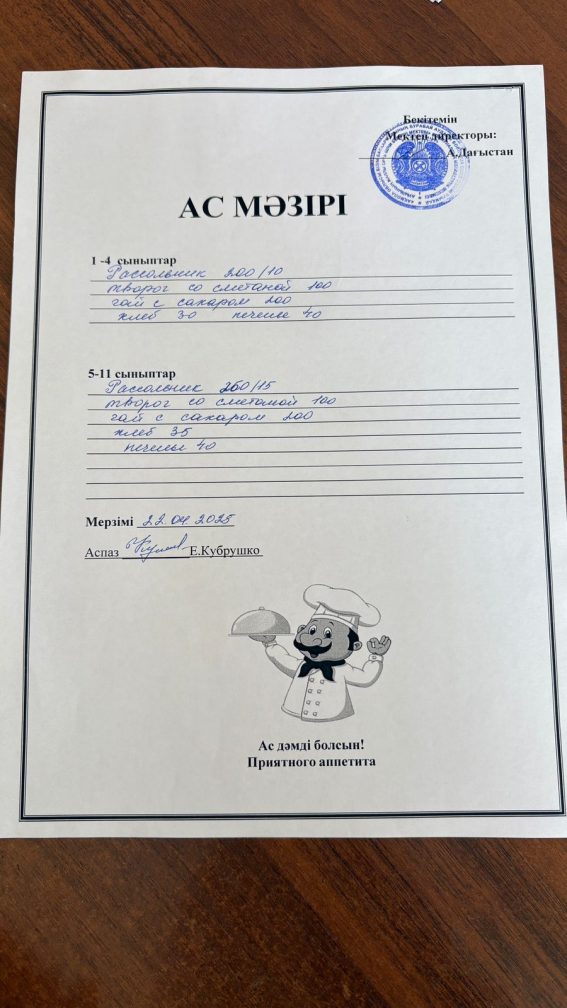 Бекітемін
Мектеп директоры:
А.Дағыстан
АС МӘЗІРІ
1 -4 сыныптар
Рассольник 200/10
творог со сметаной 100
чай с сахаром 200
хлеб 30 печенье 40
5-11 сыныптар
Рассольник 250/15
творог со сметаной 100
чай с сахаром 200
хлеб 35
печенье 40
Мерзімі 22.04.2025
Аспаз Е.Кубрушко
Ас дәмді болсын!
Приятного аппетита